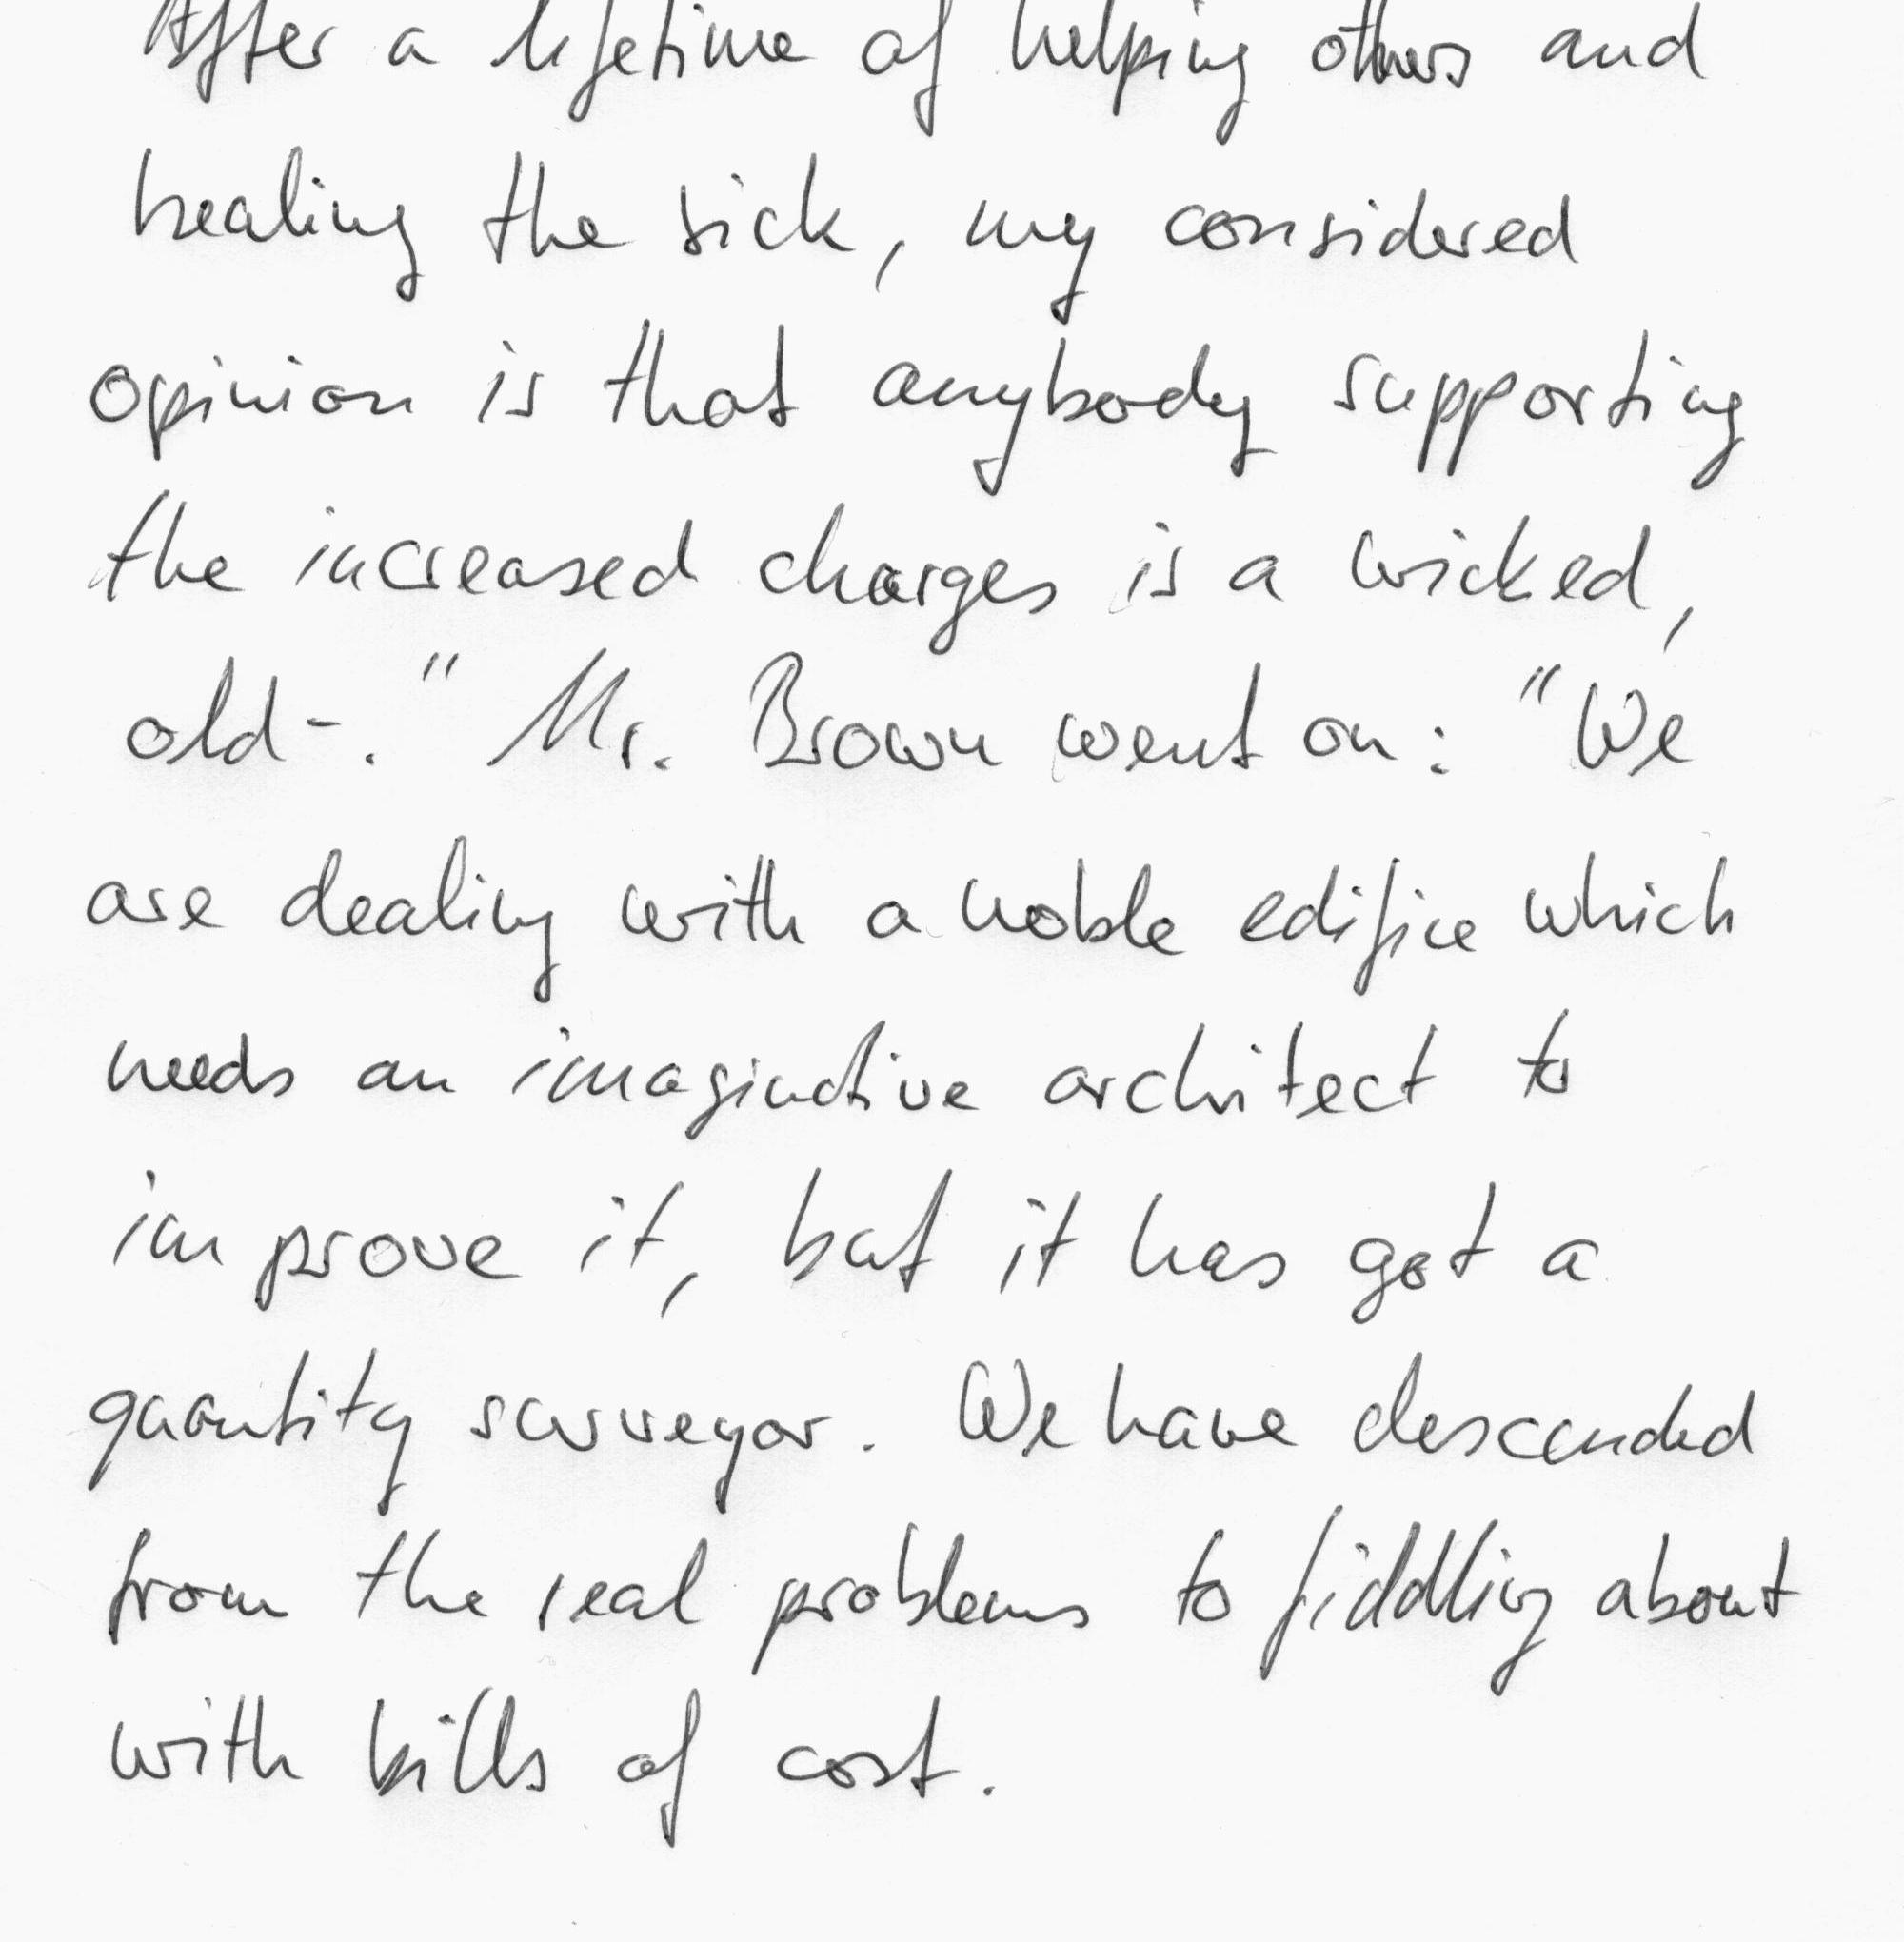 After a lifetime of helping others and
healing the sick, my considered
opinion is that anybody supporting
the increased charges is a wicked,
old-." Mr. Brown went on: "We
are dealing with a noble edifice which
needs an imaginative architect to
improve it, but it has got a
quantity surveyor. We have descended
from the real problems to fiddling about
with bills of cost.